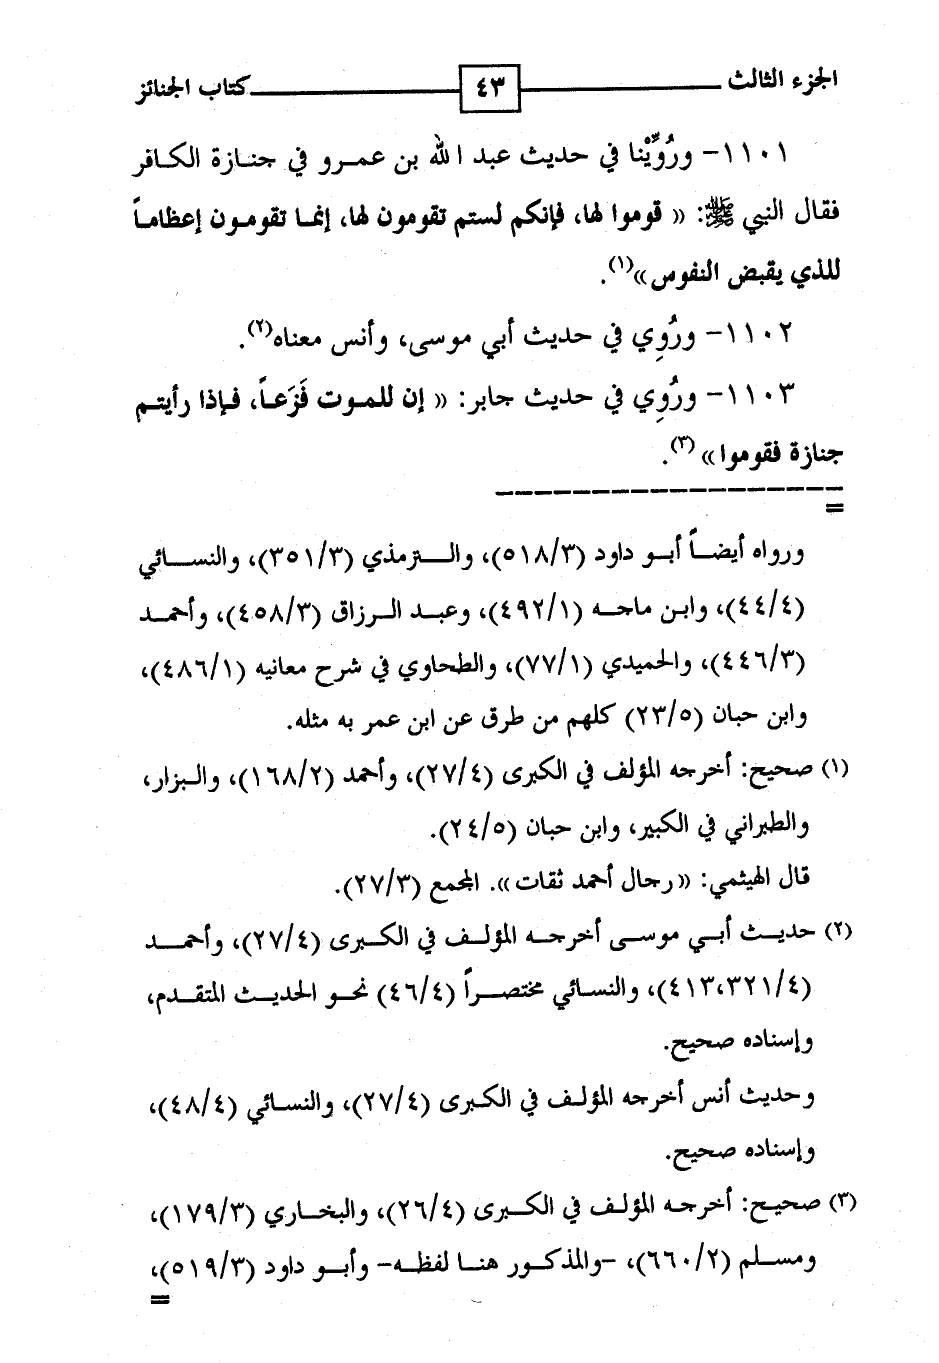 الجزء الثالث ٤٣ كتاب الجنائز
١١٠١- ورُوِّيْنا في حديث عبد الله بن عمرو في جنازة الكافر
فقال النبي ﷺ: « قوموا لها، فإنكم لستم تقومون لها، إنما تقومون إعظاماً
للذي يقبض النفوس»(١).
١١٠٢- ورُوِي في حديث أبي موسى، وأنس معناه(٢).
١١٠٣- ورُوِي في حديث جابر: « إن للموت فَزَعاً، فإذا رأيتم
جنازة فقوموا»(٣).
=
ورواه أيضاً أبو داود (٥١٨/٣)، والترمذي (٣٥١/٣)، والنسائي
(٤٤/٤)، وابن ماجه (٤٩٢/١)، وعبد الرزاق (٤٥٨/٣)، وأحمد
(٤٤٦/٣)، والحميدي (٧٧/١)، والطحاوي في شرح معانيه (٤٨٦/١)،
وابن حبان (٢٣/٥) كلهم من طرق عن ابن عمر به مثله.
(١) صحيح: أخرجه المؤلف في الكبرى (٢٧/٤)، وأحمد (١٦٨/٢)، والبزار،
والطبراني في الكبير، وابن حبان (٢٤/٥).
قال الهيثمي: «رحال أحمد ثقات». المجمع (٢٧/٣).
(٢) حديث أبي موسى أخرجه المؤلف في الكبرى (٢٧/٤)، وأحمد
(٤١٣،٣٢١/٤)، والنسائي مختصراً (٤٦/٤) نحو الحديث المتقدم،
وإسناده صحيح.
وحديث أنس أخرجه المؤلف في الكبرى (٢٧/٤)، والنسائي (٤٨/٤)،
وإسناده صحيح.
(٣) صحيح: أخرجه المؤلف في الكبرى (٢٦/٤)، والبخاري (١٧٩/٣)،
ومسلم (٦٦٠/٢)، -والمذكور هنا لفظه- وأبو داود (٥١٩/٣)،
=